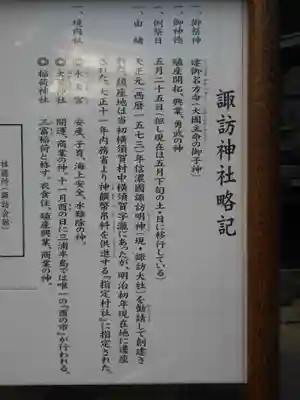 諏訪神社略記
一、御祭神
建御名方命(大國主命の御子神)
一、御神徳
殖産開拓、興業、勇武の神
一、例祭日
五月二十五日(但し現在は五月下旬の土・日に移行している)
一、由緒
天正元(西暦一五七三)年信濃國諏訪明神(現・諏訪大社)を勧請して創建さ
鎮座地は当初横須賀村中横須賀字瀧にあったが、明治初年現在地に遷座
された。大正十一年内務省より神饌幣帛料を供進する『指定村社』に指定された。
一、境内社
◎水天宮
安産、子育、海上安全、水難除の神。
◎大鳥神社
開運、商業の神。十一月酉の日に三浦半島では唯一の『酉の市』が行われる。
◎稲荷神社
三富稲荷と称す。衣食住、殖産興業、商業の神。
社務所(諏訪会館)